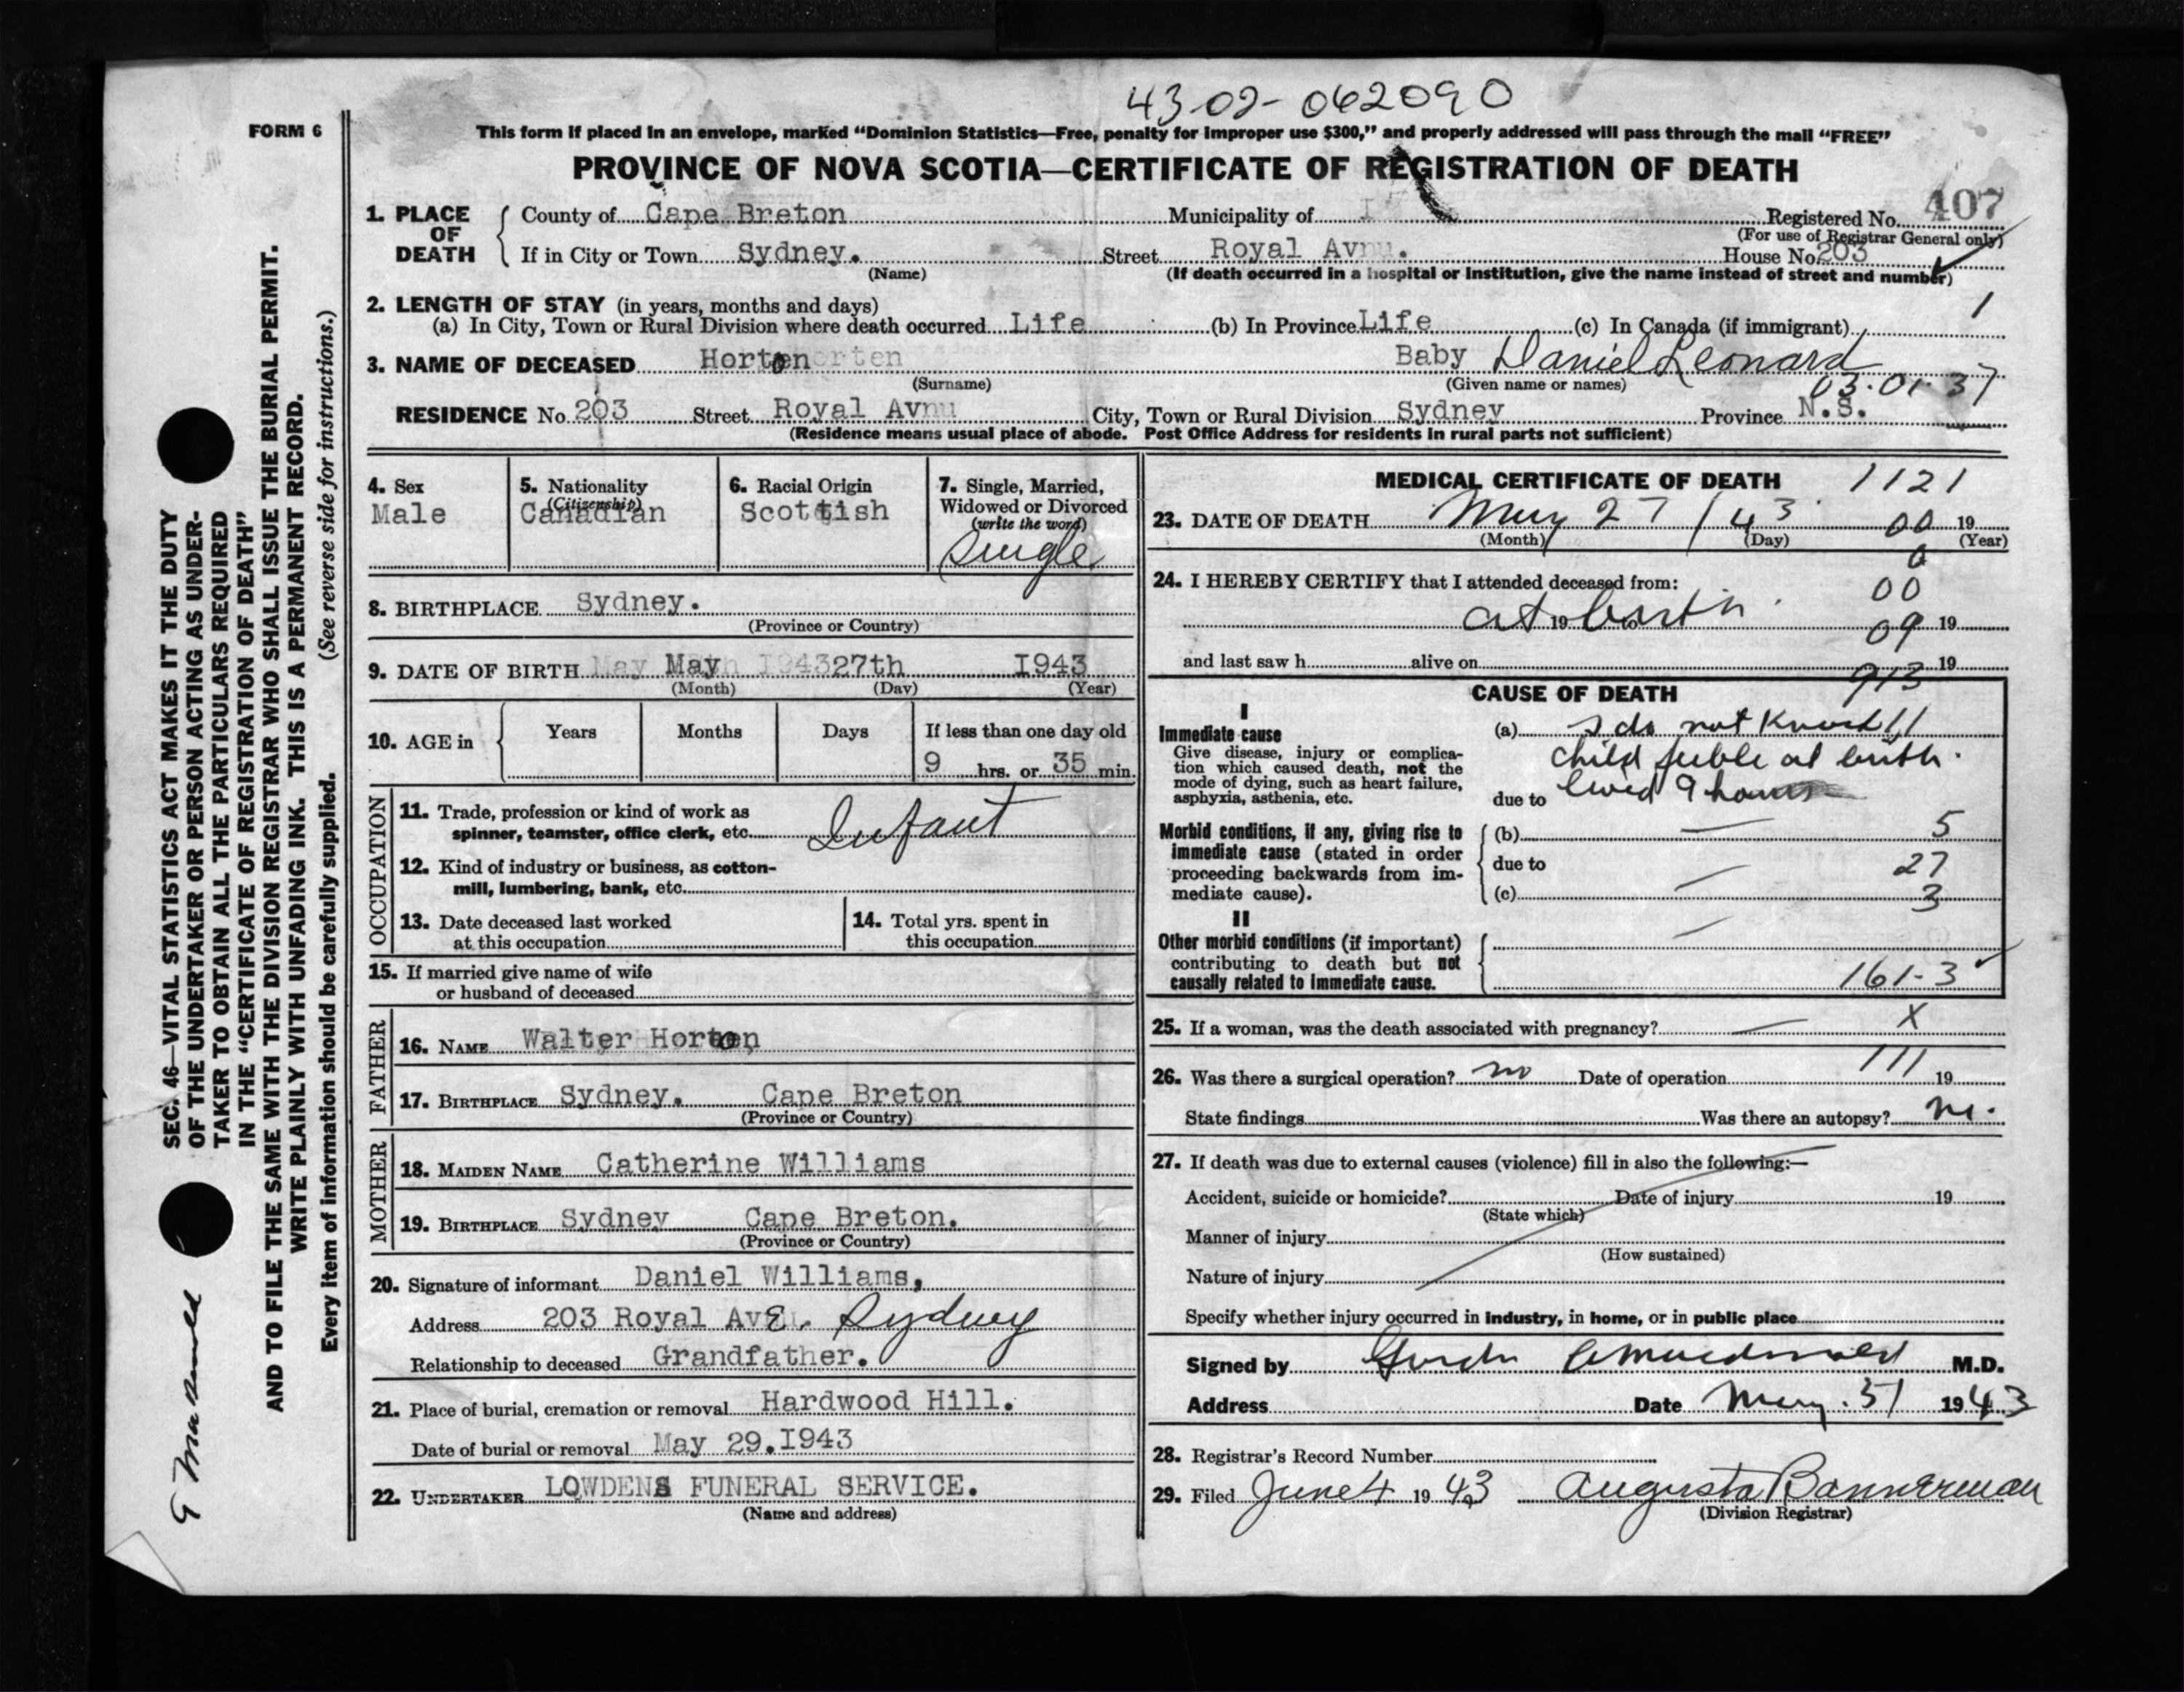 43-02-062090
FORM 6
This form if placed in an envelope, marked “Dominion Statistics—Free, penalty for improper use $300,” and properly addressed will pass through the mail “FREE”
PROVINCE OF NOVA SCOTIA—CERTIFICATE OF REGISTRATION OF DEATH
1. PLACE OF DEATH
County of Cape Breton Municipality of Registered No. 407
(For use of Registrar General only)
If in City or Town Sydney. Street Royal Avnu. House No. 203
(Name) (If death occurred in a hospital or institution, give the name instead of street and number)
2. LENGTH OF STAY (in years, months and days) 1
(a) In City, Town or Rural Division where death occurred Life (b) In Province Life (c) In Canada (if immigrant)
3. NAME OF DECEASED Horton Baby Daniel Leonard
(Surname) (Given name or names) 03-01-37
RESIDENCE No. 203 Street Royal Avnu City, Town or Rural Division Sydney Province N.S.
(Residence means usual place of abode. Post Office Address for residents in rural parts not sufficient)
4. Sex
Male
5. Nationality
(Citizenship)
Canadian
6. Racial Origin
Scottish
7. Single, Married,
Widowed or Divorced
(write the word)
Single
8. BIRTHPLACE Sydney.
(Province or Country)
9. DATE OF BIRTH May 27th 1943
(Month) (Day) (Year)
10. AGE in
Years Months Days If less than one day old
9 hrs. or 35 min.
OCCUPATION
11. Trade, profession or kind of work as
spinner, teamster, office clerk, etc. Infant
12. Kind of industry or business, as cotton-
mill, lumbering, bank, etc.
13. Date deceased last worked
at this occupation
14. Total yrs. spent in
this occupation
15. If married give name of wife
or husband of deceased
FATHER
16. NAME Walter Horton
17. BIRTHPLACE Sydney. Cape Breton
(Province or Country)
MOTHER
18. MAIDEN NAME Catherine Williams
19. BIRTHPLACE Sydney Cape Breton.
(Province or Country)
20. Signature of informant Daniel Williams,
Address 203 Royal Ave. Sydney
Relationship to deceased Grandfather.
21. Place of burial, cremation or removal Hardwood Hill.
Date of burial or removal May 29.1943
22. UNDERTAKER LOWDENS FUNERAL SERVICE.
(Name and address)
MEDICAL CERTIFICATE OF DEATH 1121
23. DATE OF DEATH May 27/43 00 19
(Month) (Day) (Year)
0
24. I HEREBY CERTIFY that I attended deceased from: 00
at 19 birth 09 19
and last saw h alive on 913 19
CAUSE OF DEATH
I
Immediate cause
Give disease, injury or complica-
tion which caused death, not the
mode of dying, such as heart failure,
asphyxia, asthenia, etc.
(a) I do not know!!
child feeble at birth.
due to lived 9 hours
Morbid conditions, if any, giving rise to
immediate cause (stated in order
proceeding backwards from im-
mediate cause).
(b) — 5
due to 27
(c) — 3
II
Other morbid conditions (if important)
contributing to death but not
causally related to immediate cause.
161-3
25. If a woman, was the death associated with pregnancy? — X
26. Was there a surgical operation? no Date of operation 111 19
State findings Was there an autopsy? no.
27. If death was due to external causes (violence) fill in also the following:—
Accident, suicide or homicide? Date of injury 19
(State which)
Manner of injury
(How sustained)
Nature of injury
Specify whether injury occurred in industry, in home, or in public place
Signed by M.D.
Address Date May. 31 1943
28. Registrar's Record Number
29. Filed June 4 1943 Augusta Bannerman
(Division Registrar)
SEC. 46—VITAL STATISTICS ACT MAKES IT THE DUTY
OF THE UNDERTAKER OR PERSON ACTING AS UNDER-
TAKER TO OBTAIN ALL THE PARTICULARS REQUIRED
IN THE “CERTIFICATE OF REGISTRATION OF DEATH”
AND TO FILE THE SAME WITH THE DIVISION REGISTRAR WHO SHALL ISSUE THE BURIAL PERMIT.
WRITE PLAINLY WITH UNFADING INK. THIS IS A PERMANENT RECORD.
Every item of information should be carefully supplied. (See reverse side for instructions.)